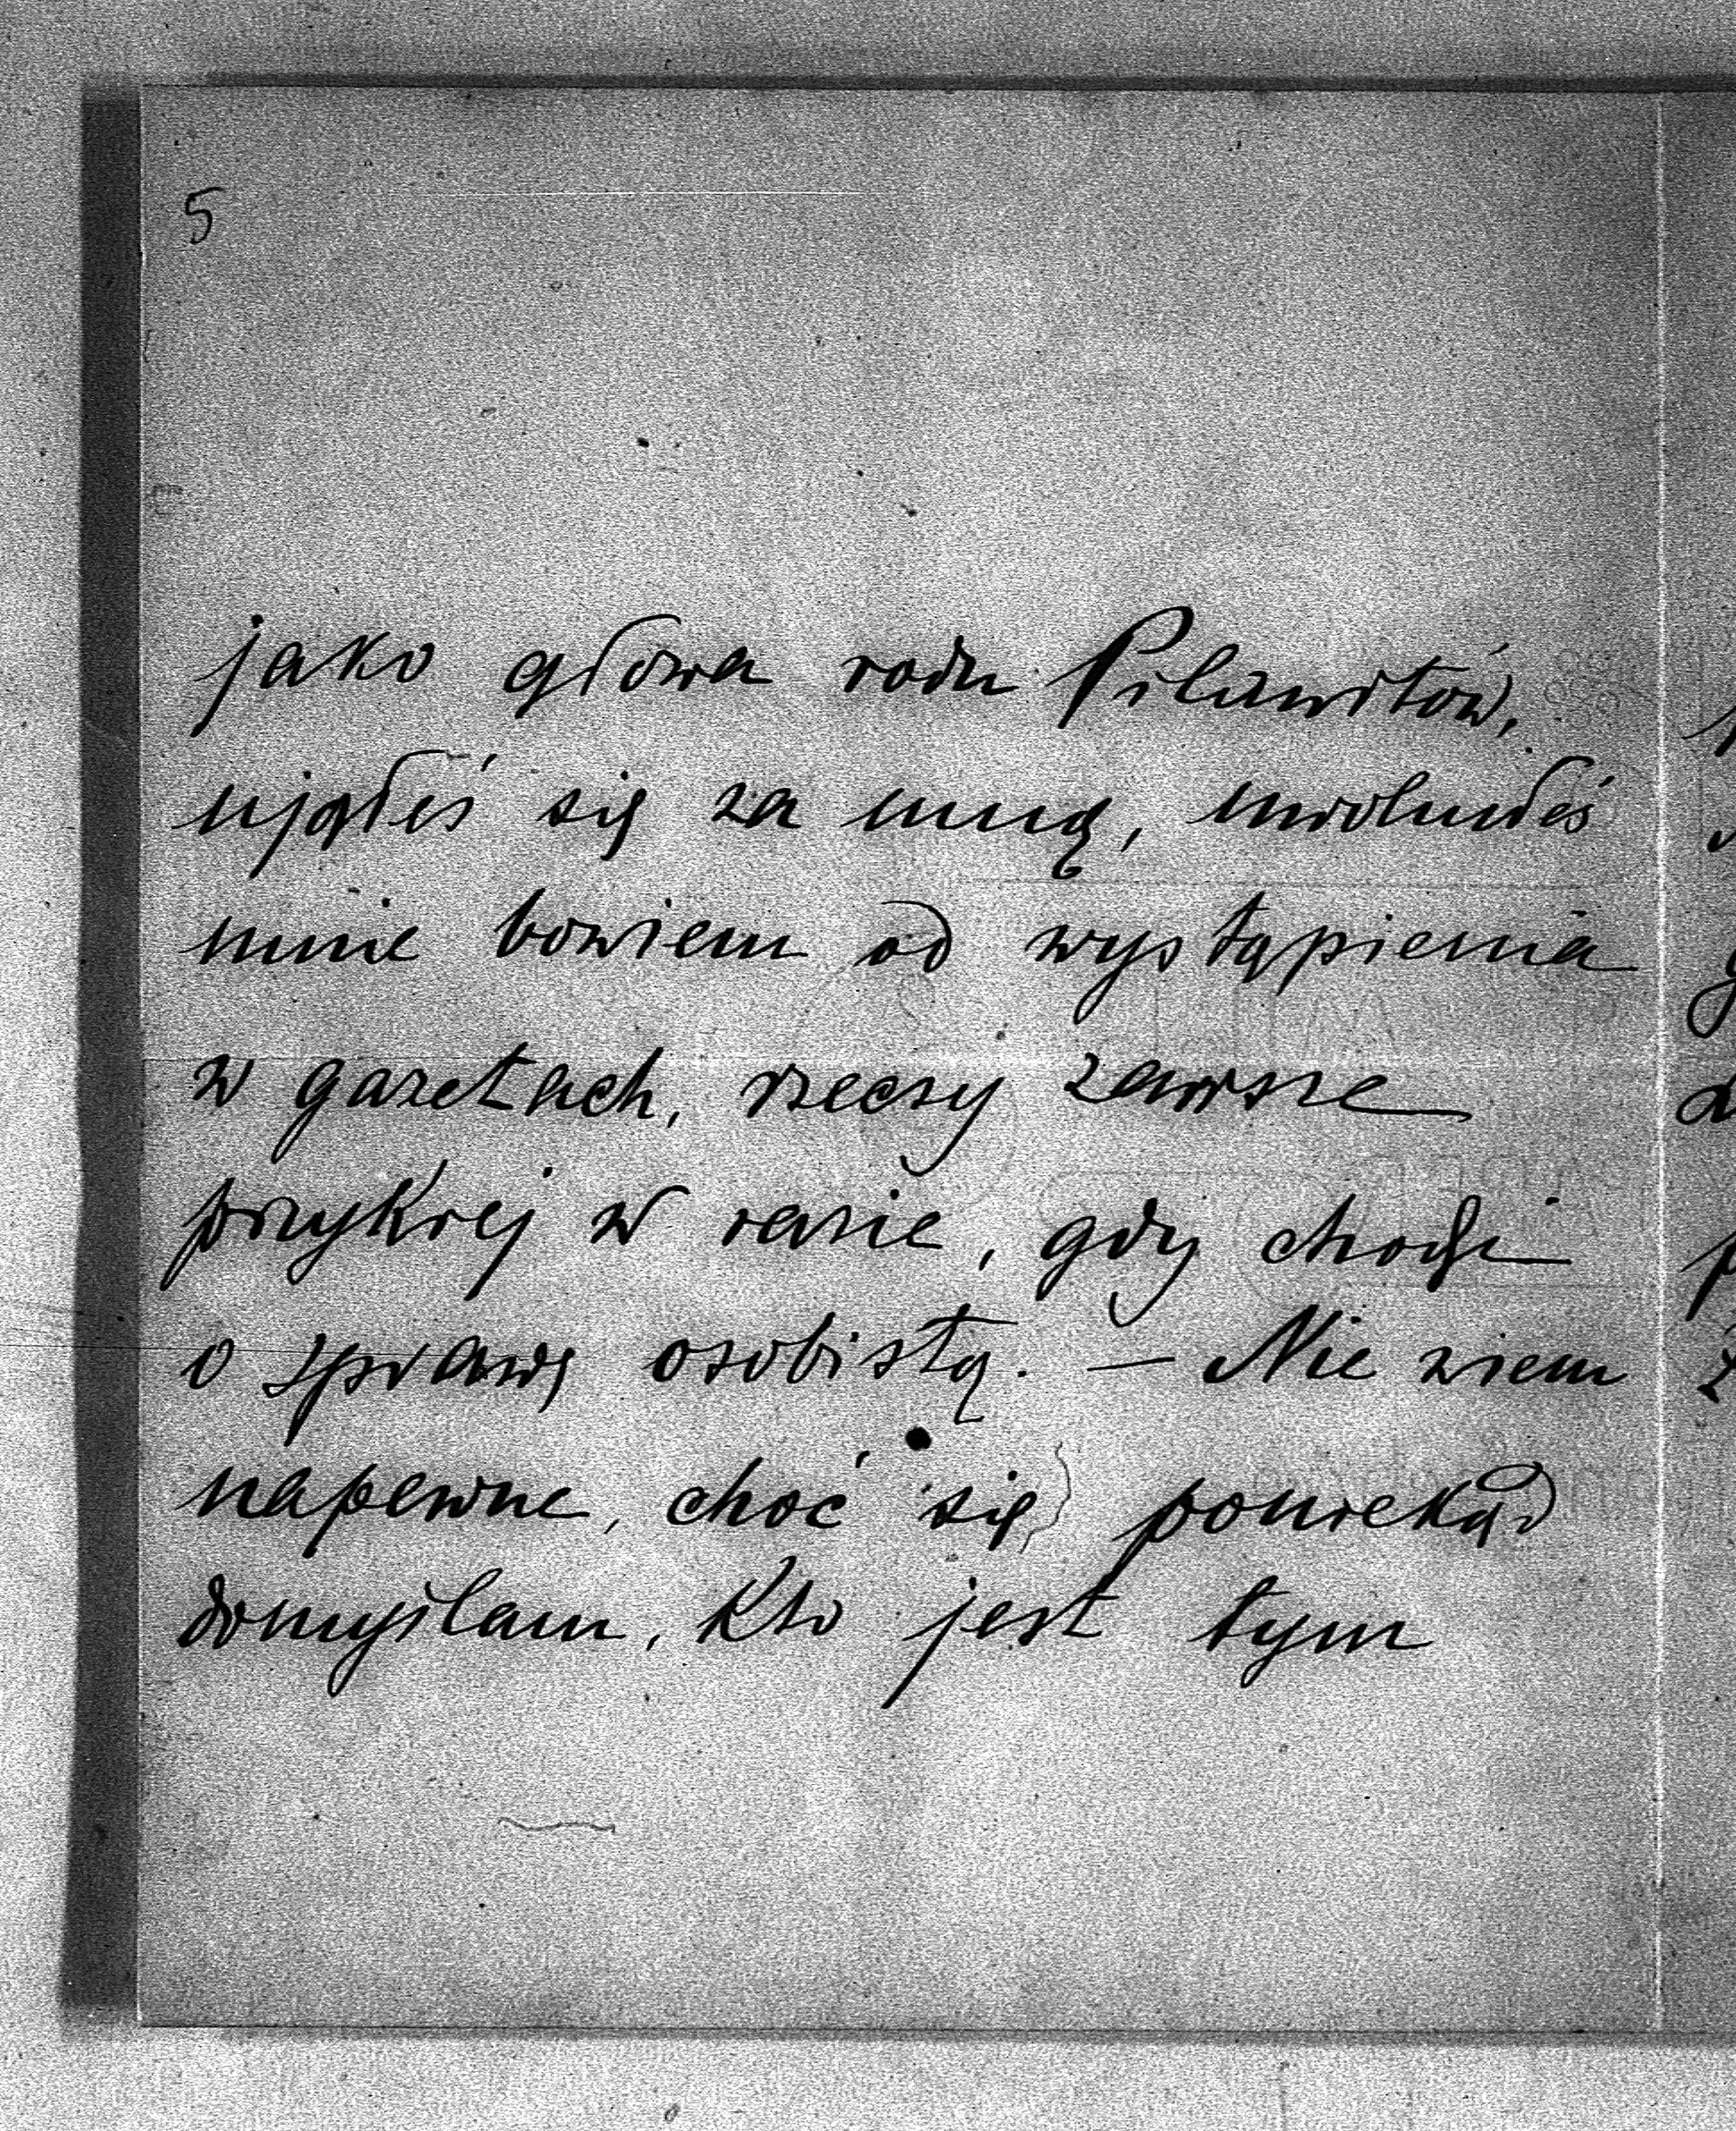 5
jako głowa rodu Pilawitów,
ująłeś się za mną, uwolniłeś
mnie bowiem od wystąpienia
w gazetach, rzeczy zawsze
przykrej w razie, gdy chodzi
o sprawę osobistą. — Nie wiem
napewne, choć się poniekąd
domyślam, kto jest tym